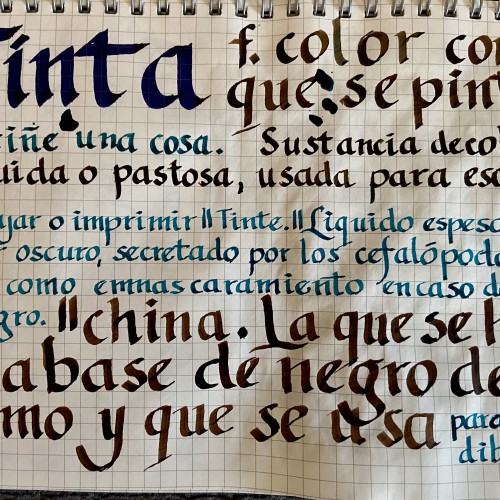 Tinta f. color con
que se pin
tiñe una cosa. Sustancia deco
uida o pastosa, usada para esc
ujar o imprimir || Tinte. || Líquido espeso
oscuro, secretado por los cefalópodo
como emnascaramiento en caso de
gro. || china. La que se h
a base de negro de
umo y que se usa para
dib